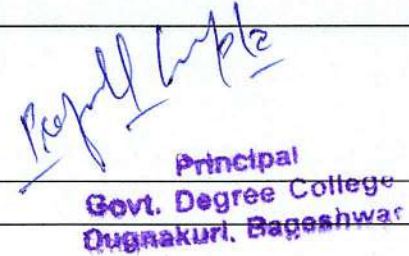 Principal
Govt. Degree College
Dugnakuri, Bageshwar